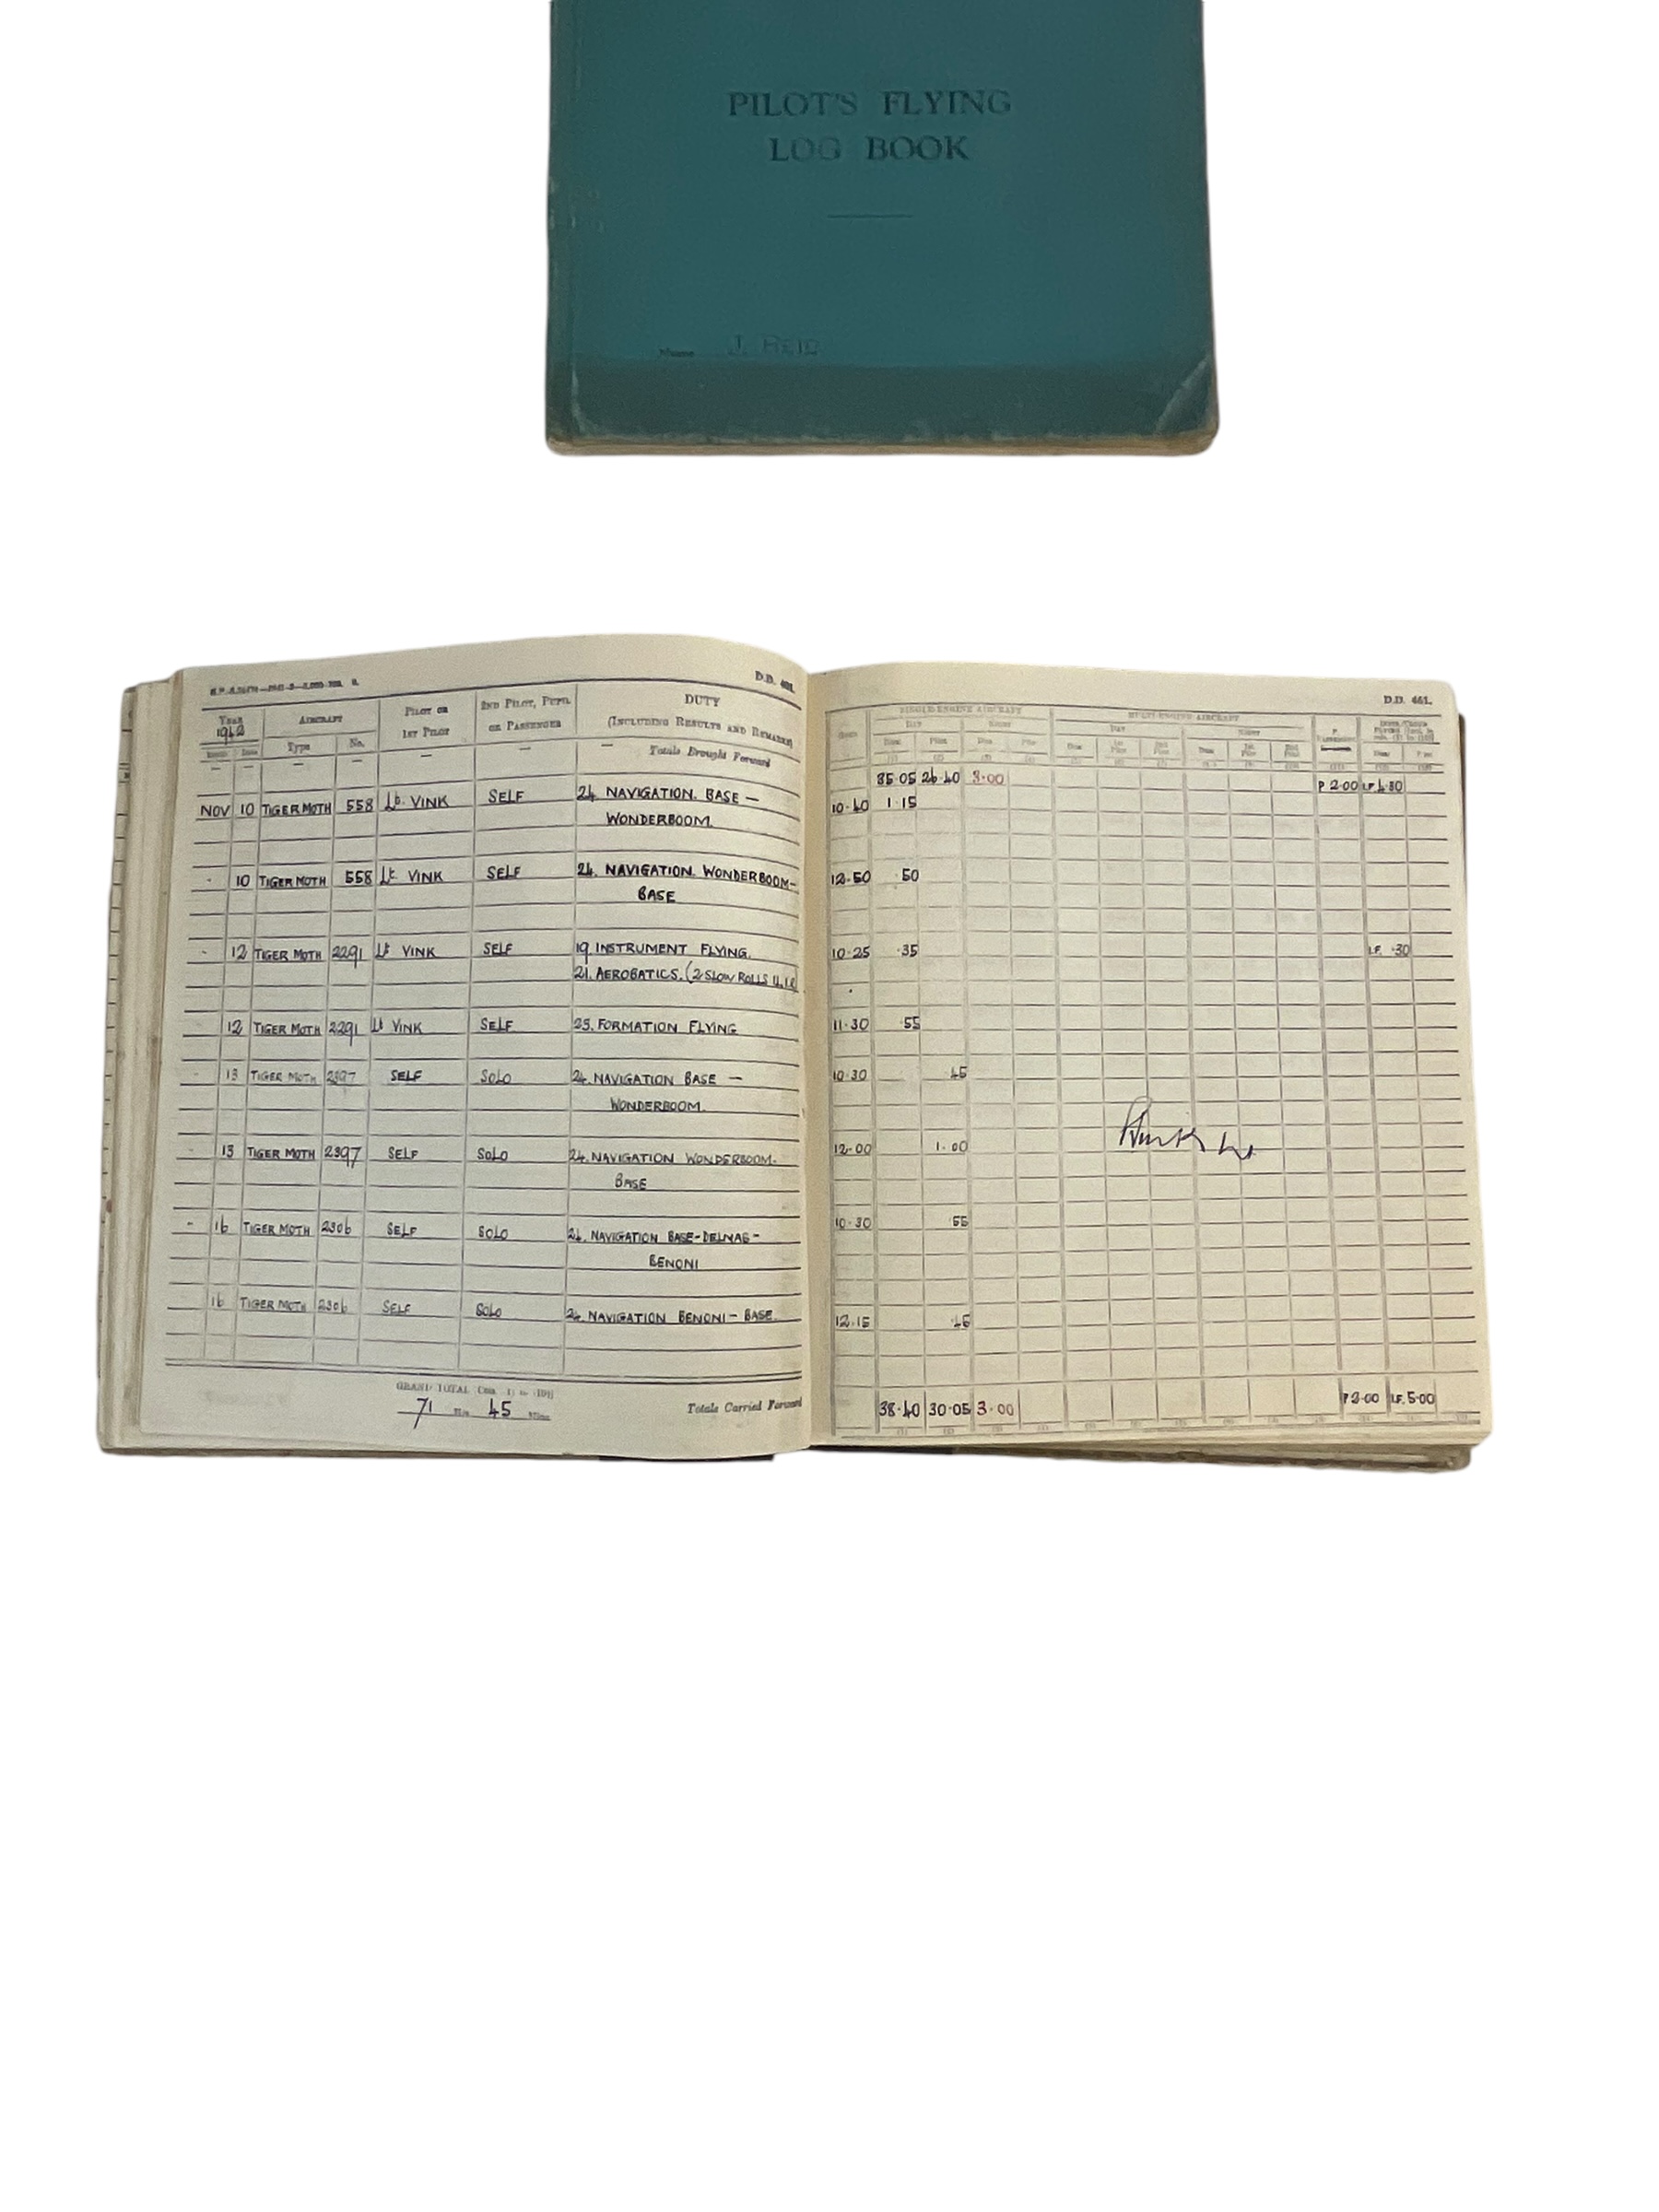 PILOT'S FLYING
LOG BOOK
Name J. REID
D.D. 461.
D.D. 461.
YEAR 1942 AIRCRAFT PILOT OR 1ST PILOT 2ND PILOT, PUPIL OR PASSENGER DUTY (INCLUDING RESULTS AND REMARKS)
SINGLE-ENGINE AIRCRAFT MULTI-ENGINE AIRCRAFT
Type No.
DAY NIGHT DAY NIGHT
Totals Brought Forward 35.05 26.40 3.00 P 2.00 I.F. 4.30
NOV 10 TIGER MOTH 558 Lt. VINK SELF 24. NAVIGATION. BASE — 10.40 1.15
WONDERBOOM.
10 TIGER MOTH 558 Lt VINK SELF 24. NAVIGATION. WONDERBOOM- 12.50 .50
BASE
12 TIGER MOTH 2291 Lt VINK SELF 19. INSTRUMENT FLYING. 10.25 .35 I.F. .30
21. AEROBATICS. (2 SLOW ROLLS
12 TIGER MOTH 2291 Lt VINK SELF 25. FORMATION FLYING 11.30 .55
13 TIGER MOTH 2397 SELF SOLO 24. NAVIGATION BASE — 10.30 .45
WONDERBOOM.
13 TIGER MOTH 2397 SELF SOLO 24. NAVIGATION WONDERBOOM- 12.00 1.00
BASE
16 TIGER MOTH 2306 SELF SOLO 24. NAVIGATION BASE-DELMAS- 10.30 .55
BENONI
16 TIGER MOTH 2306 SELF SOLO 24. NAVIGATION BENONI - BASE. 12.15 .45
GRAND TOTAL
71 Hrs. 45 Mins. Totals Carried Forward 38.40 30.05 3.00 P 2.00 I.F. 5.00